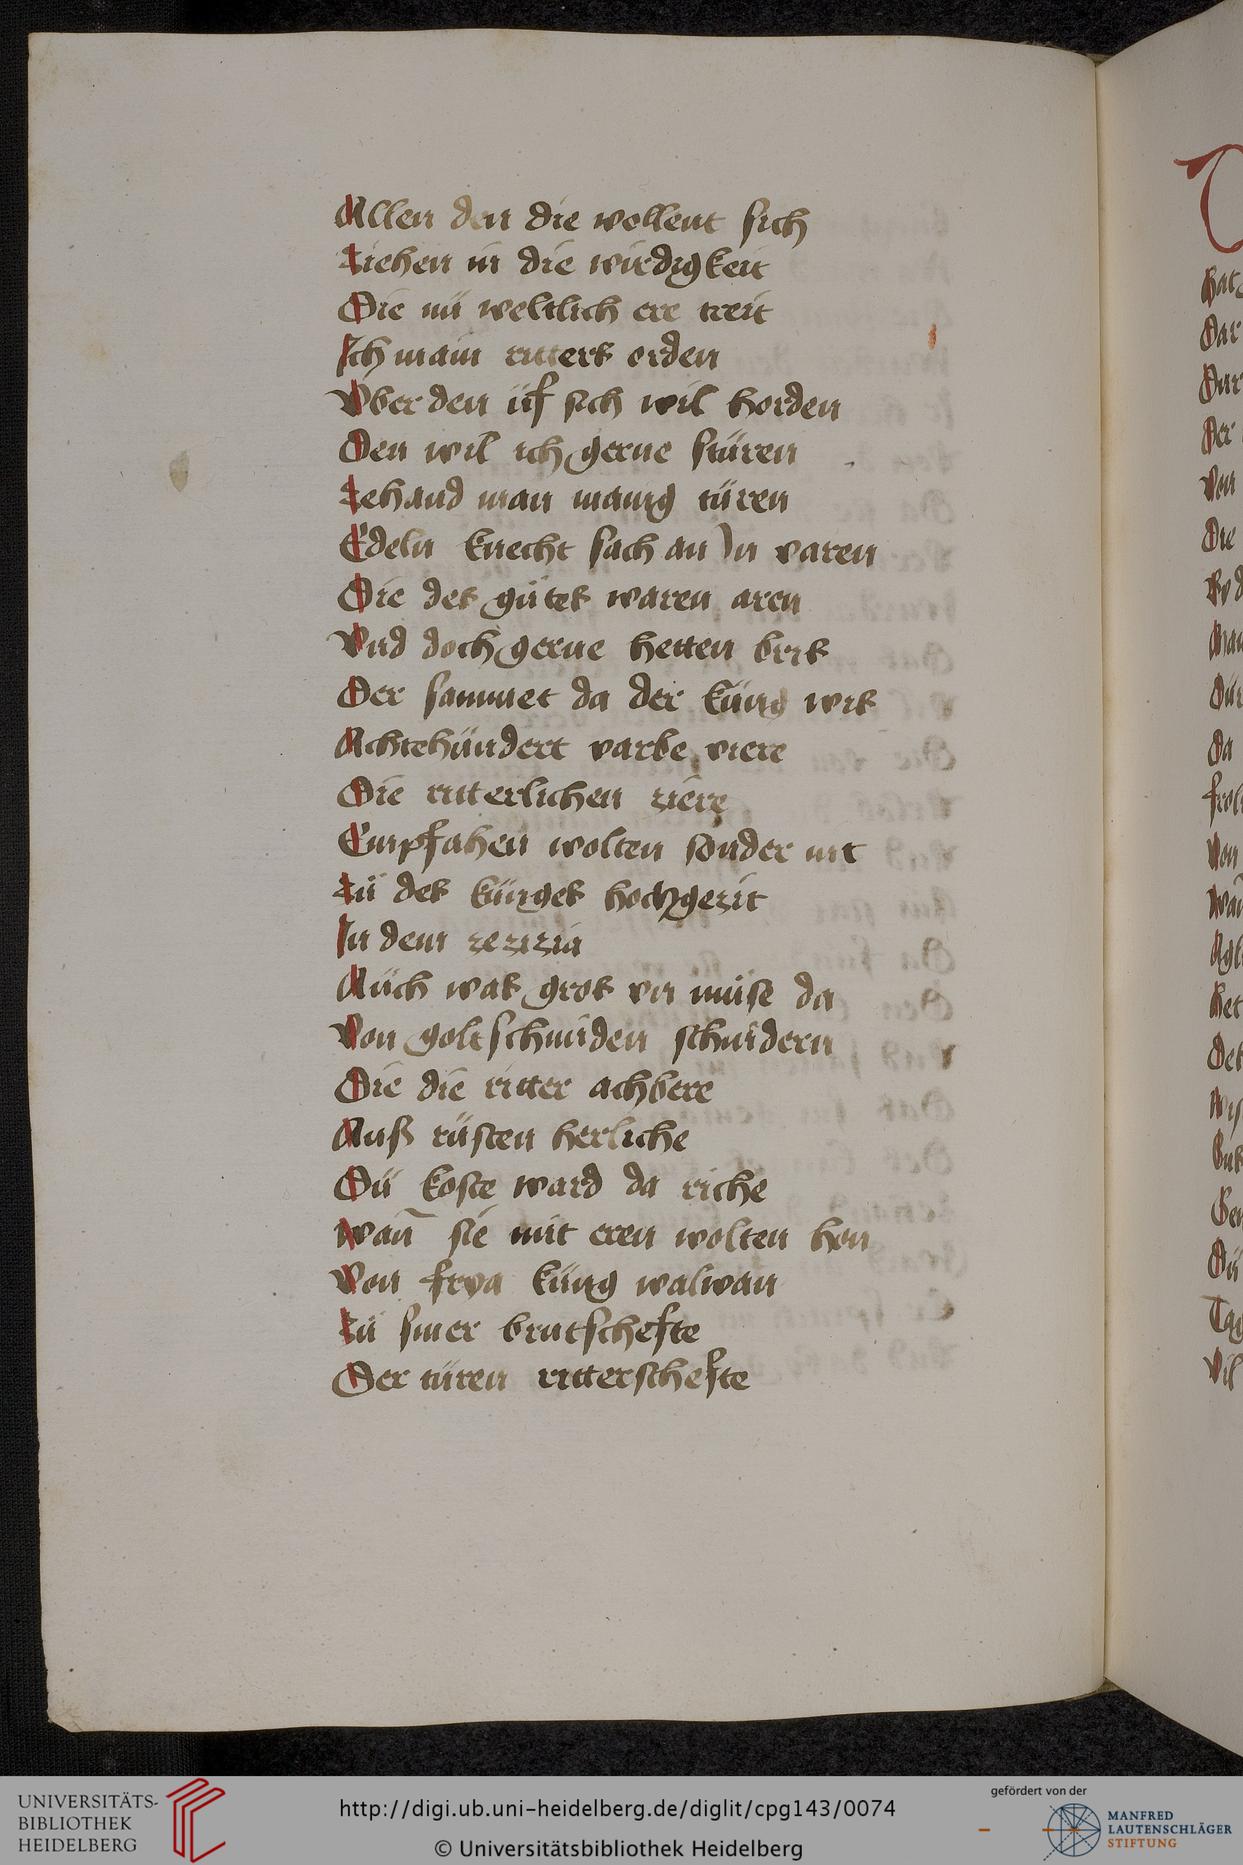 Allen den die wellent sich
Ziehen in die wirdigkeit
Die nü weltlich ere treit
Ich main ritters orden
Vber den üf sich wil horden
Den wil ich gerne stüren
Zehand man manig türen
Edeln knecht sach an In varen
Die des gütes waren aren
Vnd doch gerne hetten bris
Der sammet da der küng wis
Achtehündert varbe viere
Die ritterlichen ziere
Empfahen wolten sonder nit
Zü des küniges hochgezit
In dem zezizia
Auch was gros vn müse da
Von goltschmiden schnidern
Die die ritter achbere
Auß rüsten herliche
Dü koste ward da riche
Wan̄ sie mit eren wolten hen
Von frya küng walwan
Zü siner brutschefte
Der türen ritterschefte
Hat
Dar
Dar
Der
Von
Die
Da
Von
Het
Vil
UNIVERSITÄTS-
BIBLIOTHEK
HEIDELBERG
http://digi.ub.uni-heidelberg.de/diglit/cpg143/0074
© Universitätsbibliothek Heidelberg
gefördert von der
MANFRED
LAUTENSCHLÄGER
STIFTUNG